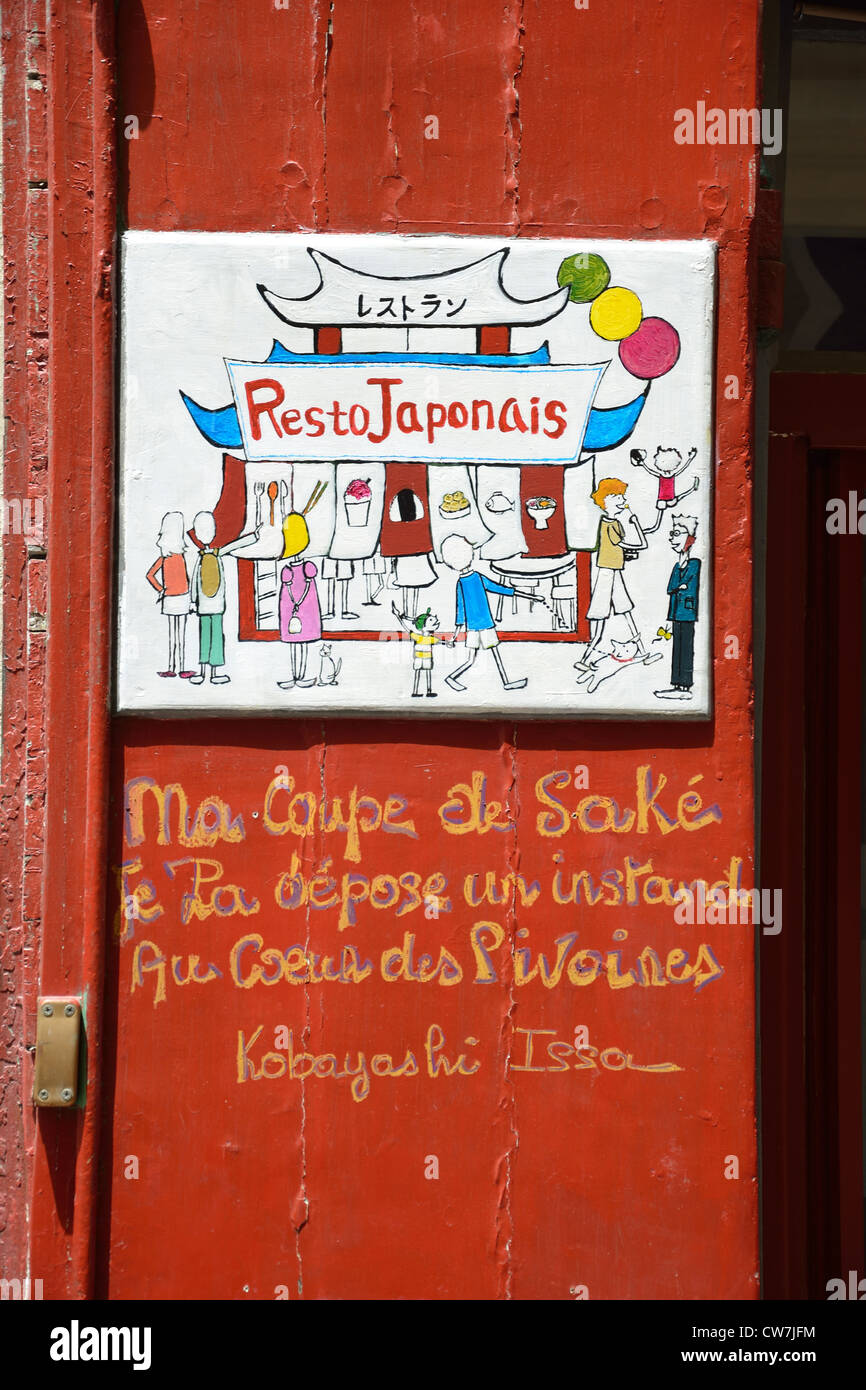 レストラン
Resto Japonais
Ma Coupe de Saké
Je La dépose un instant
Au Coeur des Pivoines
Kobayashi Issa
alamy
Image ID: CW7JFM
www.alamy.com